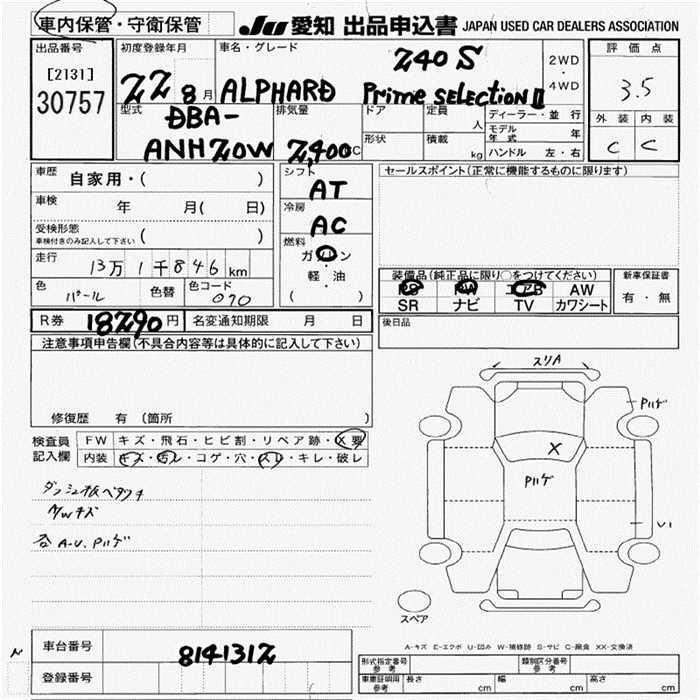 車内保管・守衛保管
JU 愛知 出品申込書 JAPAN USED CAR DEALERS ASSOCIATION
出品番号
[2131]
30757
初度登録年月
22 8月
車名・グレード
ALPHARD 240S
Prime SELECTION II
2WD
・
4WD
評価点
3.5
外装 内装
C C
型式
DBA-
ANH20W
排気量
2,400CC
ドア
定員
人
形状
積載
kg
ディーラー・並行
モデル年式 年
ハンドル 左・右
車歴
自家用・( )
車検
年 月( 日)
受検形態
車検付きのみ記入して下さい ( )
走行
13万1千846km
色
パール
色替
色コード
070
シフト
AT
冷房
AC
燃料
ガソリン
・
軽・油
( )
セールスポイント(正常に機能するものに限ります)
装備品(純正品に限り○をつけてください)
PS PW エアB AW
SR ナビ TV カワシート
新車保証書
有・無
R券 18290円 名変通知期限 月 日
後日品
注意事項申告欄(不具合内容等は具体的に記入して下さい)
修復歴 有 (箇所 )
検査員
記入欄
FW キズ・飛石・ヒビ割・リペア跡・X要
内装 キズ・汚レ・コゲ・穴・スレ・キレ・破レ
ダッシュ板ベタツキ
各 A-U、Pハゲ
スリA
Pハゲ
X
Pハゲ
U1
スペア
A-キズ E-エクボ U-凹み W-補修跡 S-サビ C-腐食 XX-交換済
N
車台番号
8141312
登録番号
形式指定番号
参考
類別区分番号
参考
車庫証明用
参考
長さ cm
幅 cm
高さ cm